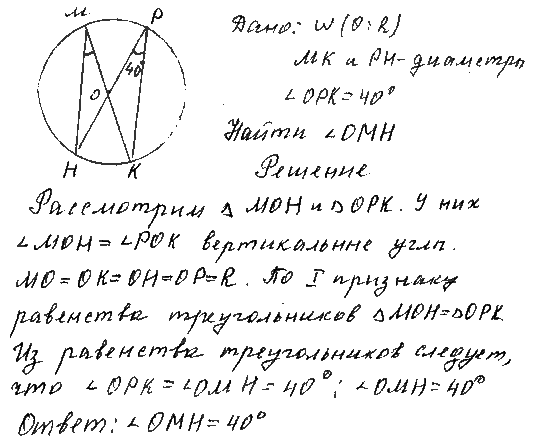 М P
40°
O
H K
Дано: W (O; R)
MK и PH - диаметры
∠OPK = 40°
Найти ∠OMH
Решение
Рассмотрим △ MOH и △ OPK. У них
∠MOH = ∠POK вертикальные углы.
MO = OK = OH = OP = R. По I признаку
равенства треугольников △MOH = △OPK
Из равенства треугольников следует,
что ∠OPK = ∠OMH = 40°; ∠OMH = 40°
Ответ: ∠OMH = 40°